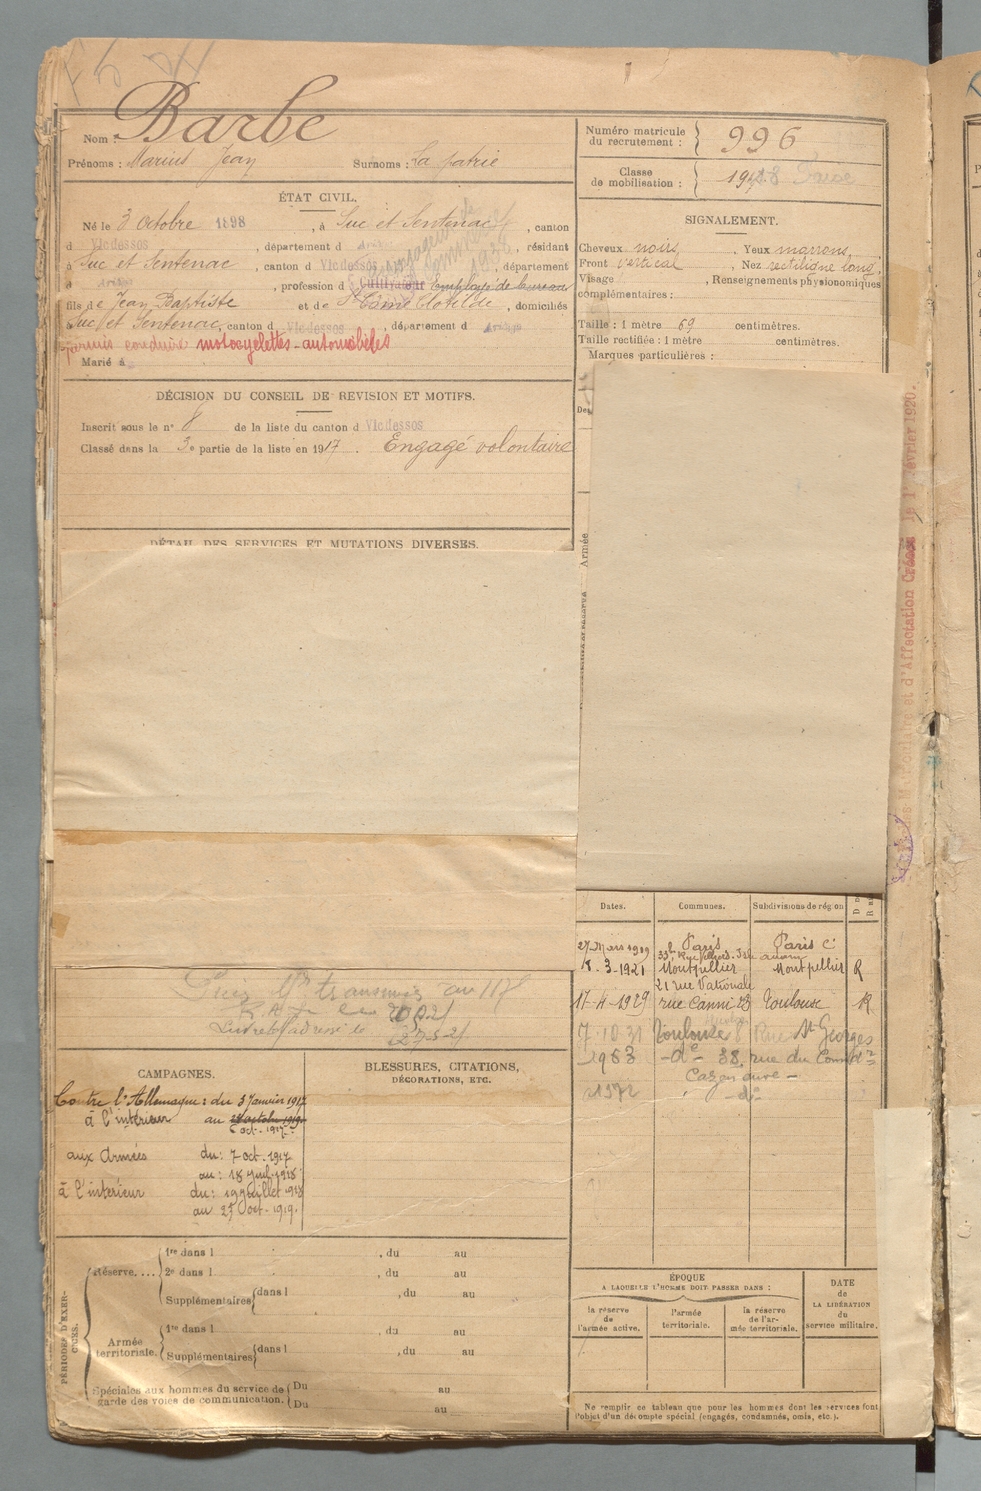 Nom : Barbe
Prénoms : Marius Jean Surnoms : La patrie
ÉTAT CIVIL.
Né le 3 octobre 1898, à Suc et Sentenac, canton
d Vicdessos, département d Ariège, résidant
à Suc et Sentenac, canton d Vicdessos, département
d Ariège, profession d Cultivateur Employé de bureau
fils de Jean Baptiste et de Clotilde, domiciliés
à Suc et Sentenac, canton d Vicdessos, département d Ariège
permis conduire motocyclettes - automobiles
Marié à
DÉCISION DU CONSEIL DE REVISION ET MOTIFS.
Inscrit sous le n° 8 de la liste du canton d Vicdessos
Classé dans la 3e partie de la liste en 1917. Engagé volontaire
DÉTAIL DES SERVICES ET MUTATIONS DIVERSES.
transmis au 117
CAMPAGNES.
Contre l'Allemagne : du 3 Janvier 1917
à l'intérieur au
oct. 1917
aux Armées du : 7 oct. 1917
au : 18 juil. 1918
à l'intérieur du : 19 juillet 1918
au 27 oct. 1919.
BLESSURES, CITATIONS,
DÉCORATIONS, ETC.
PÉRIODES D'EXERCICES.
Réserve.... 1re dans l , du au
2e dans l , du au
Supplémentaires dans l , du au
Armée territoriale. 1re dans l , du au
Supplémentaires dans l , du au
Spéciales aux hommes du service de garde des voies de communication. Du au
Du au
Numéro matricule du recrutement : 996
Classe de mobilisation : 19
SIGNALEMENT.
Cheveux noirs. Yeux marrons,
Front vertical. Nez rectiligne long,
Visage , Renseignements physionomiques
complémentaires :
Taille : 1 mètre 69 centimètres.
Taille rectifiée : 1 mètre centimètres.
Marques particulières :
Armée
et d'Affectation Créées le 1er février 1920.
Dates. Communes. Subdivisions de région
27 Mars 1919 Paris Paris C
8.3-1921 Montpellier Montpellier R
21 rue Nationale
17-4-1929 rue Toulouse R
7.10.31 Toulouse 8 Rue St Georges
1963 - do - 38, rue du
1972 - do
ÉPOQUE
A LAQUELLE L'HOMME DOIT PASSER DANS :
la réserve de l'armée active. l'armée territoriale. la réserve de l'armée territoriale.
DATE de LA LIBÉRATION du service militaire.
Ne remplir ce tableau que pour les hommes dont les services font
l'objet d'un décompte spécial (engagés, condamnés, omis, etc.).